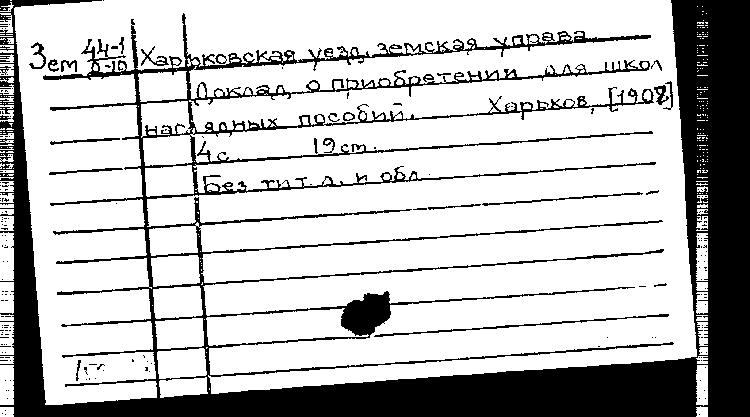 Зем 44-1 Харьковская уезд. земская управа.
Доклад о приобретении для школ
наглядных пособий. Харьков, [1907]
4с. 19см.
Без тит. л. и обл.